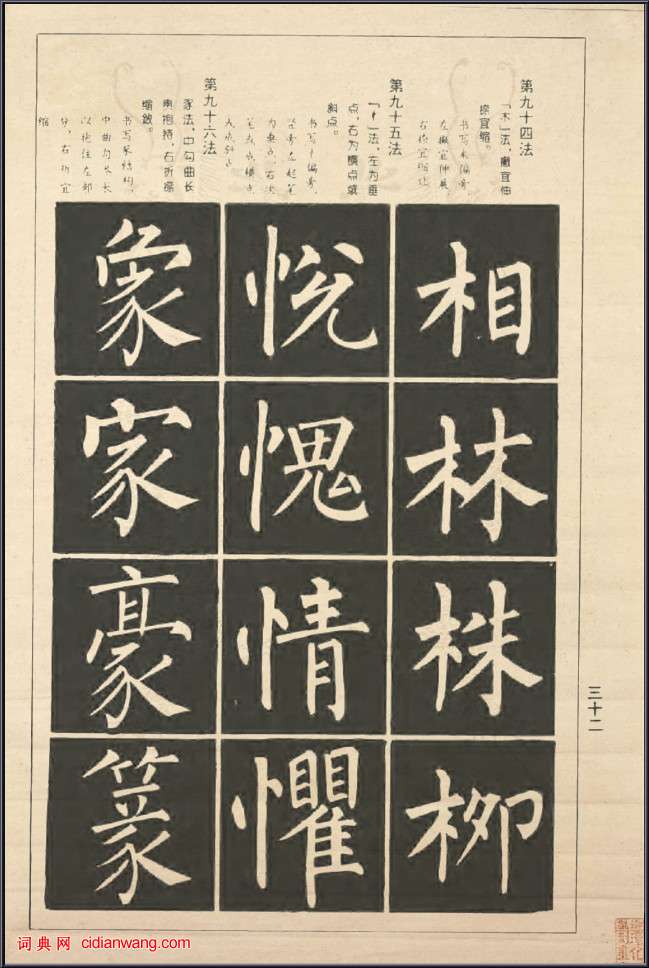 第九十四法
「木」法，撇宜伸
捺宜缩。
书写木偏旁，
左撇宜伸展
右捺宜缩让
相
林
株
柳
第九十五法
「忄」法，左为垂
点，右为横点或
斜点。
书写忄偏旁，
左起笔
为垂点，右次
笔或成横点，
或成斜点
悦
愧
情
懼
第九十六法
豕法，中勾曲长
而抱持，右折捺
缩敛。
书写豕结构，
中曲勾长
以抱住左部
分，右折宜
缩
象
家
豪
篆
三十二
词典网 cidianwang.com